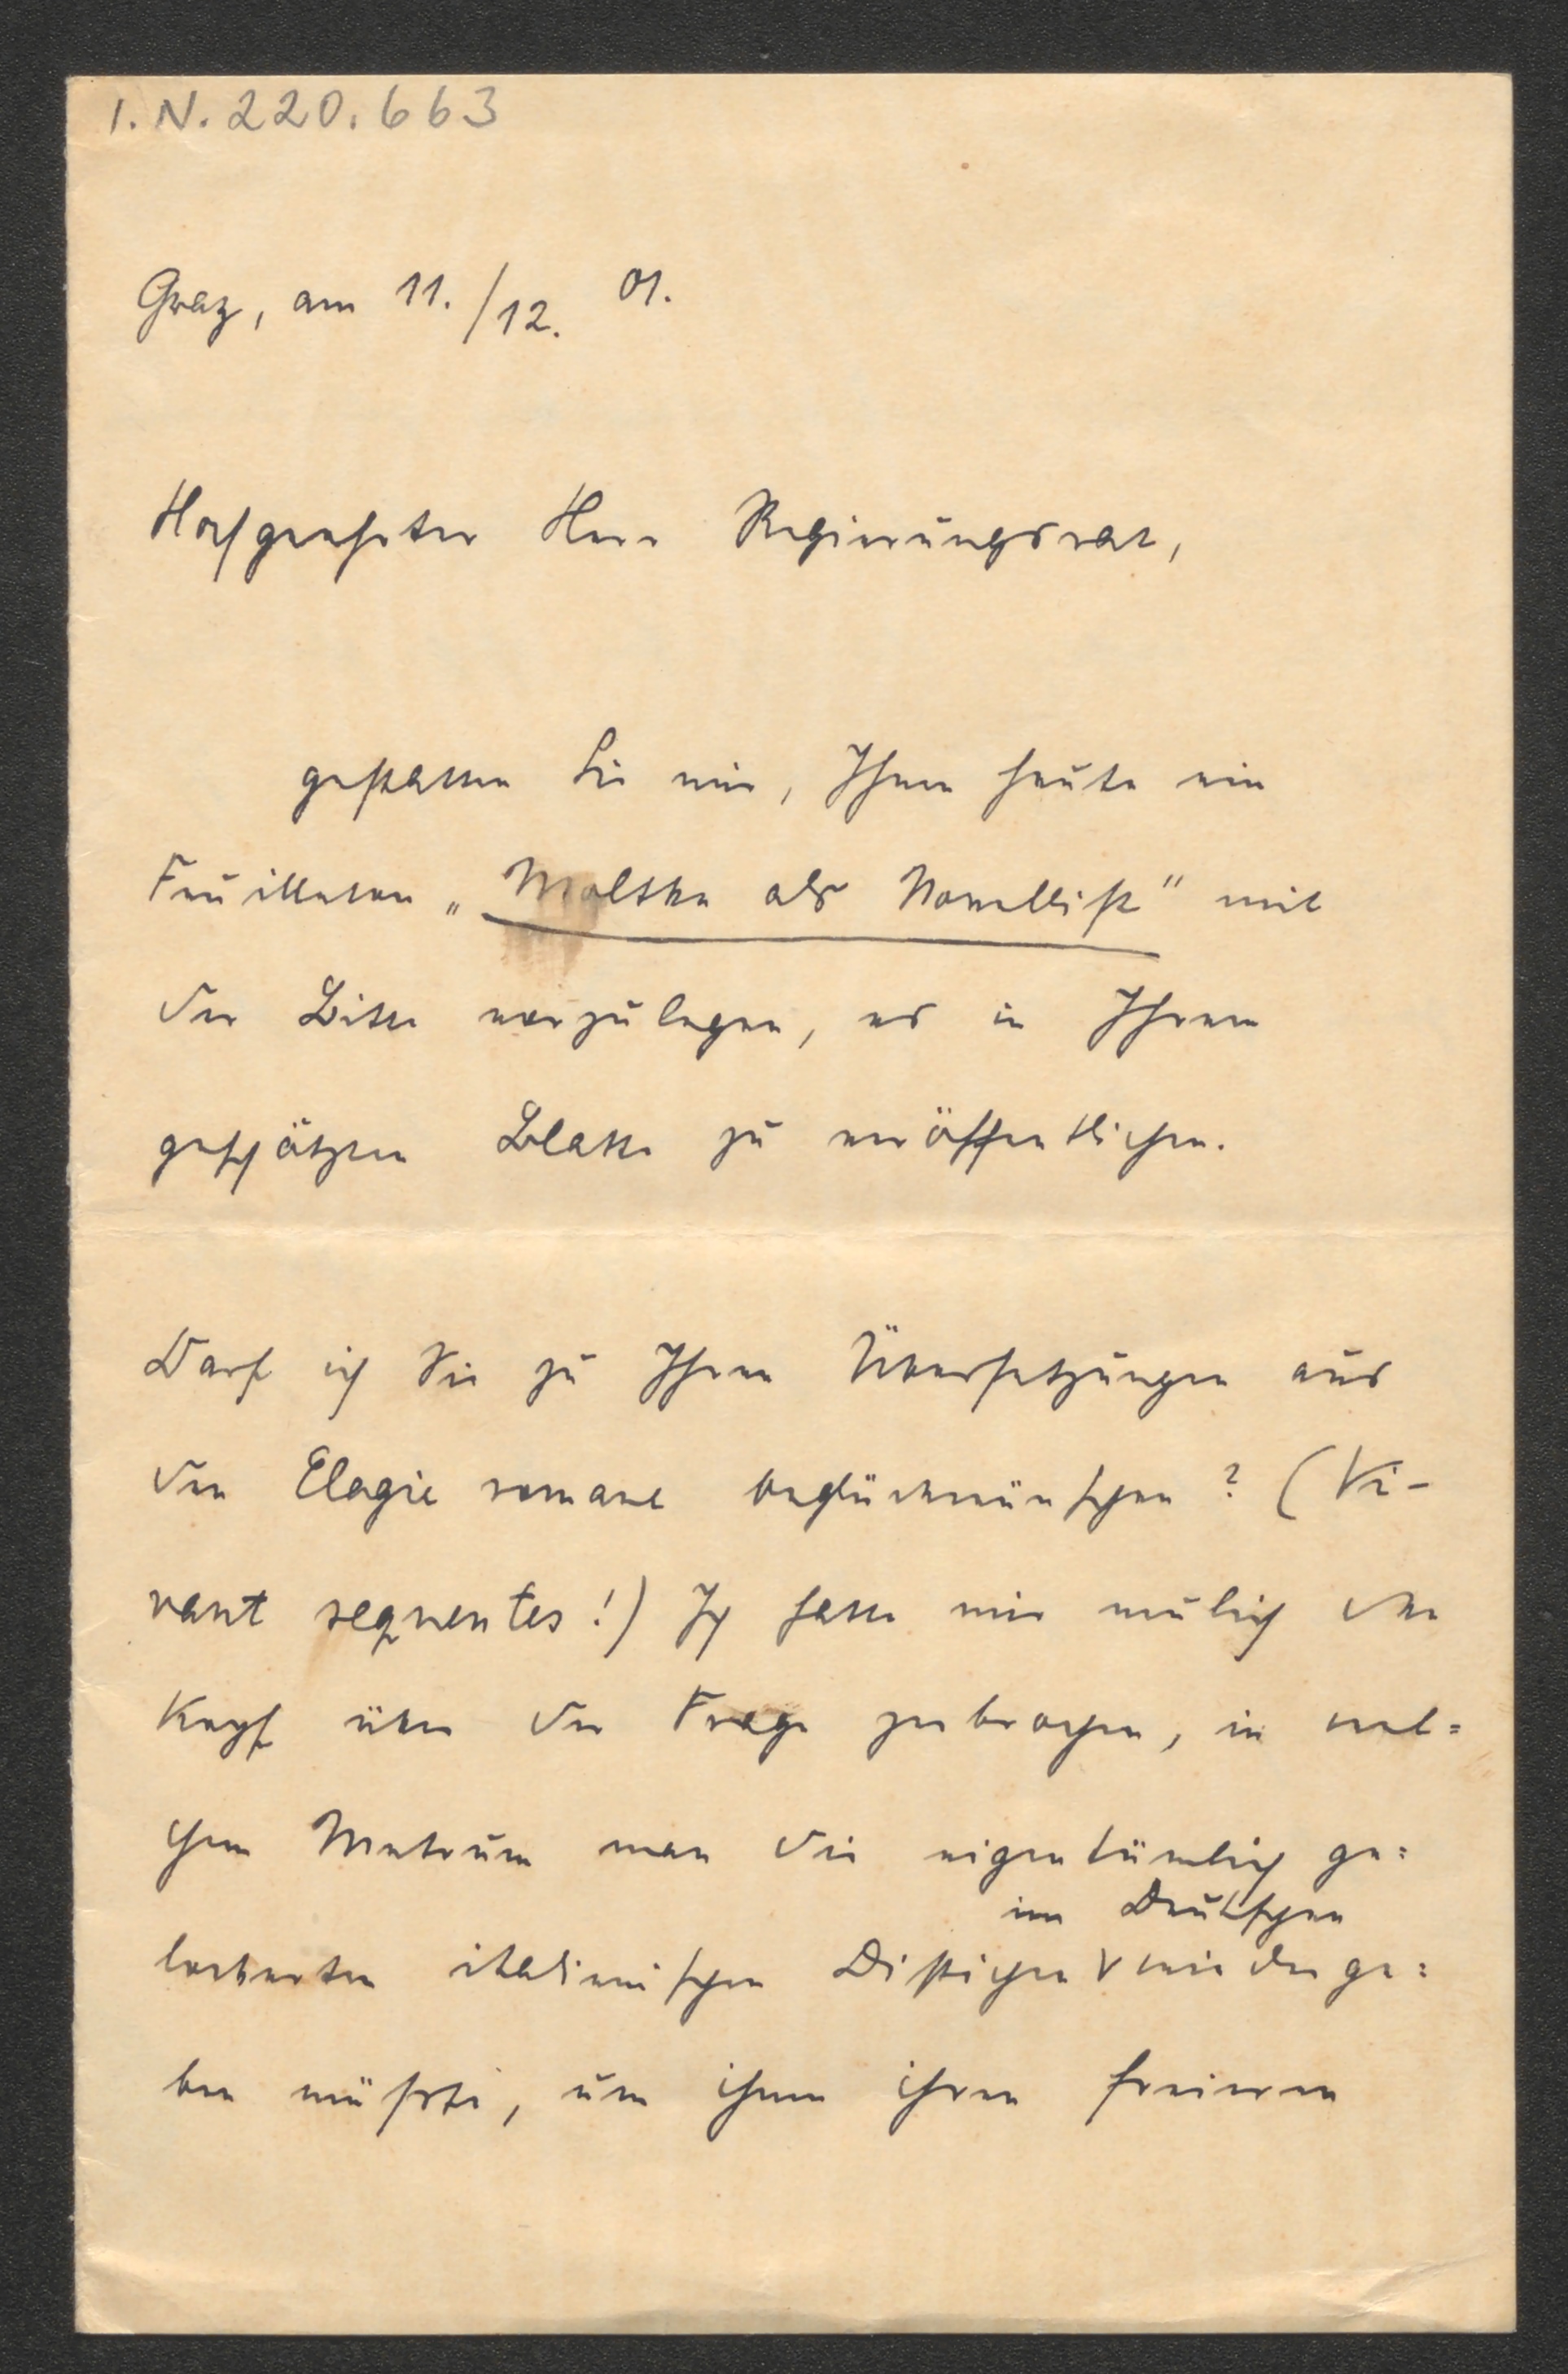 I.N. 220.663
Graz, am 11./12. 01.
Hochgeehrter Herr Regierungsrat,
gestatten Sie mir, Ihnen heute ein
Feuilleton „Moltke als Novellist" mit
der Bitte vorzulegen, es in Ihrem
geschätzten Blatte zu veröffentlichen.
Darf ich Sie zu Ihren Übersetzungen aus
den Elegie romane beglückwünschen? (Vi-
vant sequentes!) Ich hatte mir neulich den
Kopf über der Frage zerbrochen, in wel=
chem Metrum man die eigentümlich ge=
im Deutschen
lockerten italienischen Distichen wiederge=
ben müßte, um ihnen ihren freieren